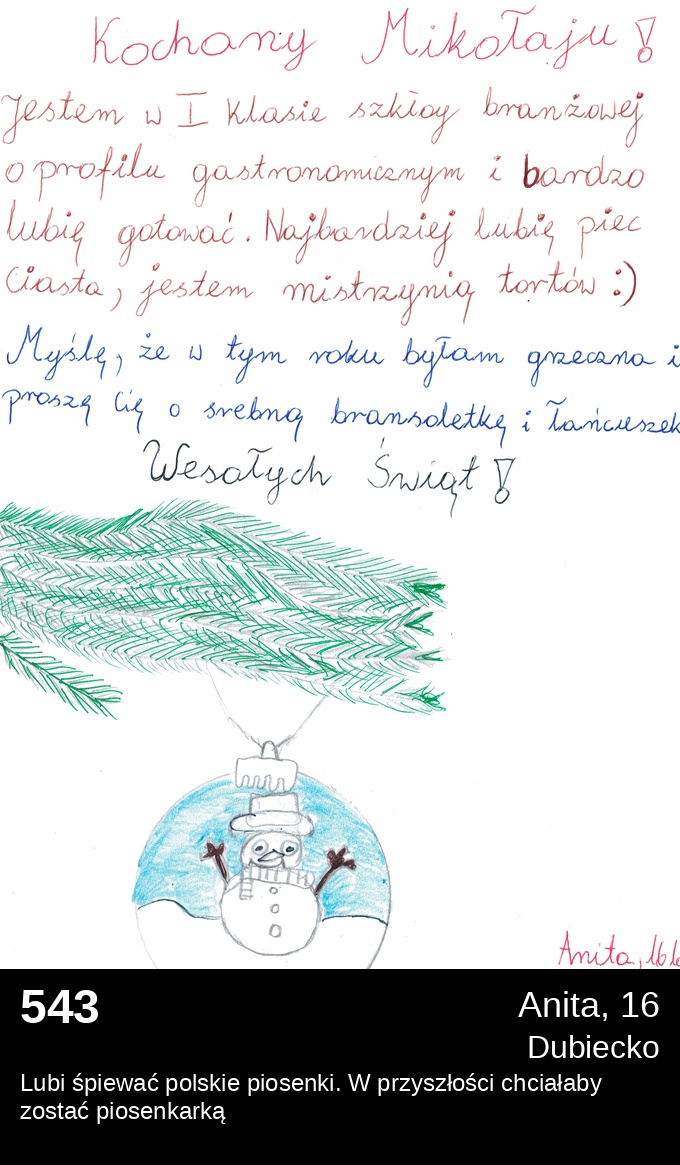 Kochany Mikołaju!
Jestem w I klasie szkłoy branżowej
o profilu gastronomicznym i bardzo
lubię gotować. Najbardziej lubię piec
ciasta, jestem mistrzynią tortów :)
Myślę, że w tym roku byłam grzeczna i
proszę Cię o srebną bransoletkę i łańcuszek
Wesołych Świąt!
Anita, 16
543
Anita, 16
Dubiecko
Lubi śpiewać polskie piosenki. W przyszłości chciałaby
zostać piosenkarką